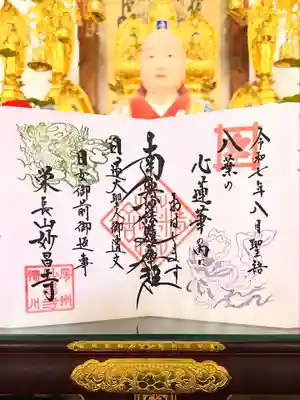 令和七年八月聖語
八葉の
心蓮華の内に
おはします
南無妙法蓮華経
日蓮大聖人御遺文
日女御前御返事
栄長山妙昌寺